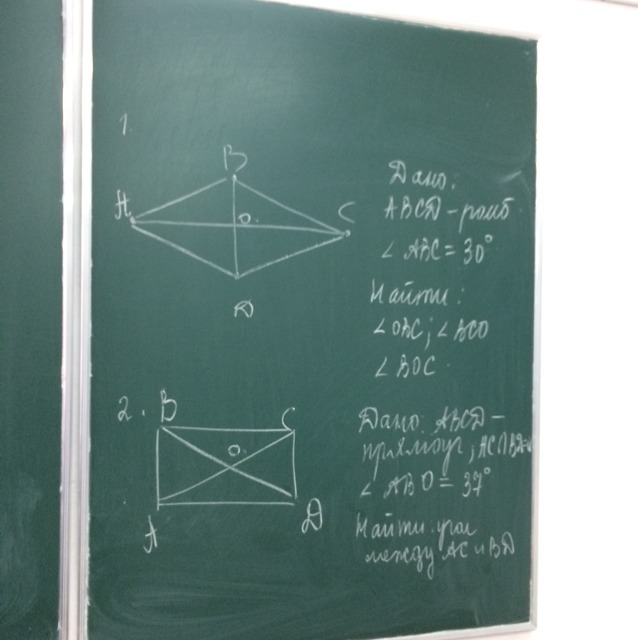 1.
B
A
O.
C
D
Дано:
ABCD - ромб
∠ ABC = 30°
Найти:
∠OBC; ∠BCO
∠BOC.
2.
B
C
O.
A
D
Дано: ABCD -
прямоуг; AC∩BD=
∠ ABO = 37°
Найти угол
между AC и BD